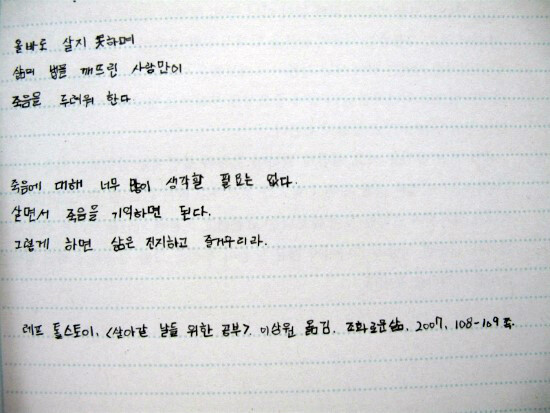 올바로 살지 못하며
삶의 법을 깨뜨린 사람만이
죽음을 두려워 한다
죽음에 대해 너무 많이 생각할 필요는 없다.
살면서 죽음을 기억하면 된다.
그렇게 하면 삶은 진지하고 즐거우리라.
레프 톨스토이, <살아갈 날들 위한 공부>, 이상원 옮김. 조화로운삶, 2007, 108-109쪽.